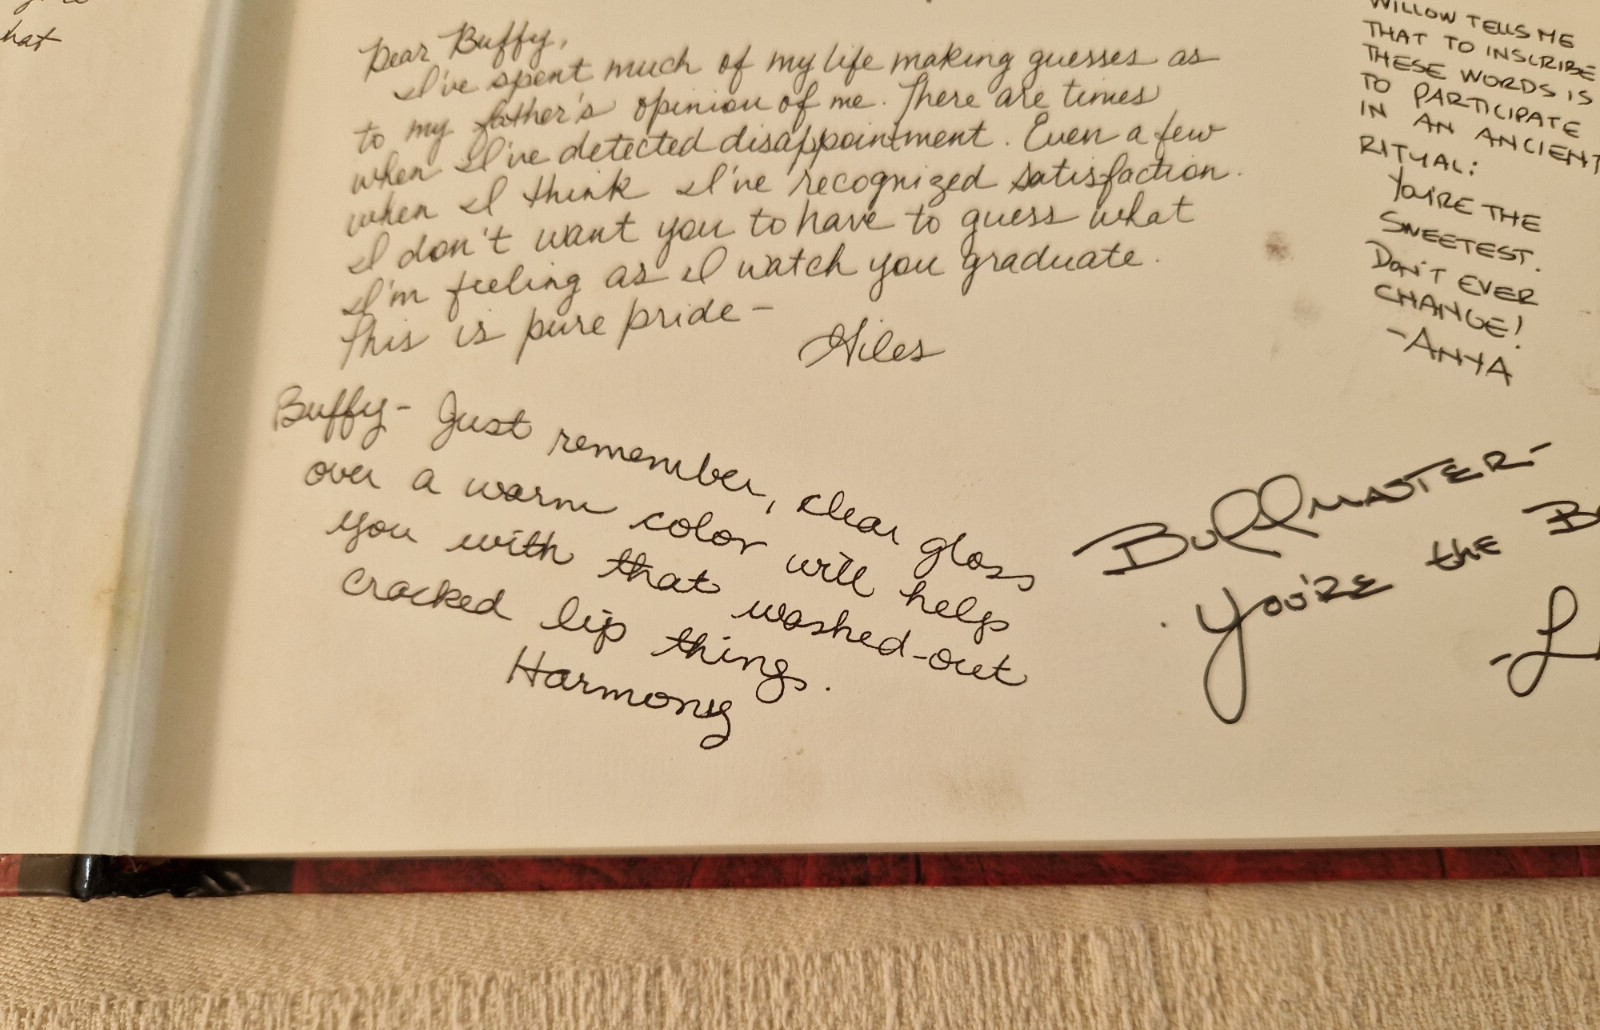 hat
Dear Buffy,
I've spent much of my life making guesses as
to my father's opinion of me. There are times
when I've detected disappointment. Even a few
when I think I've recognized satisfaction.
I don't want you to have to guess what
I'm feeling as I watch you graduate.
This is pure pride –
Giles
Buffy – Just remember, clear gloss
over a warm color will help
you with that washed-out
cracked lip thing.
Harmony
WILLOW TELLS ME
THAT TO INSCRIBE
THESE WORDS IS
TO PARTICIPATE
IN AN ANCIENT
RITUAL:
YOU'RE THE
SWEETEST.
DON'T EVER
CHANGE!
-ANYA
BUFFMASTER-
YOU'RE the B
-L